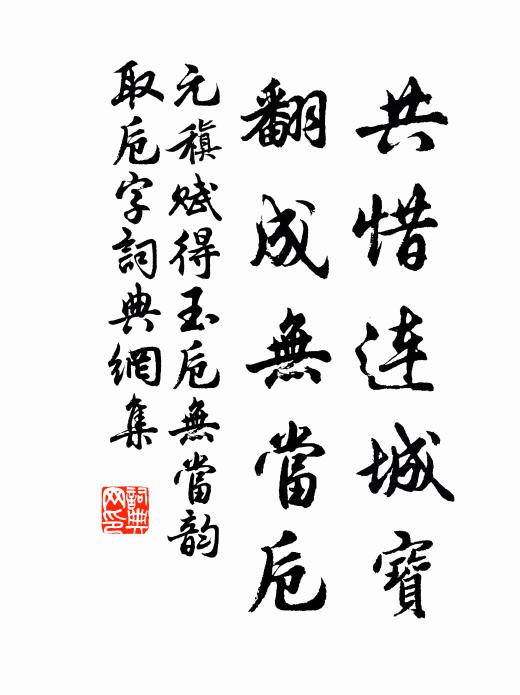 共惜连城寶
翻成無當卮
元稹赋得玉卮無當韵
取卮字詞典網集
詞典网印